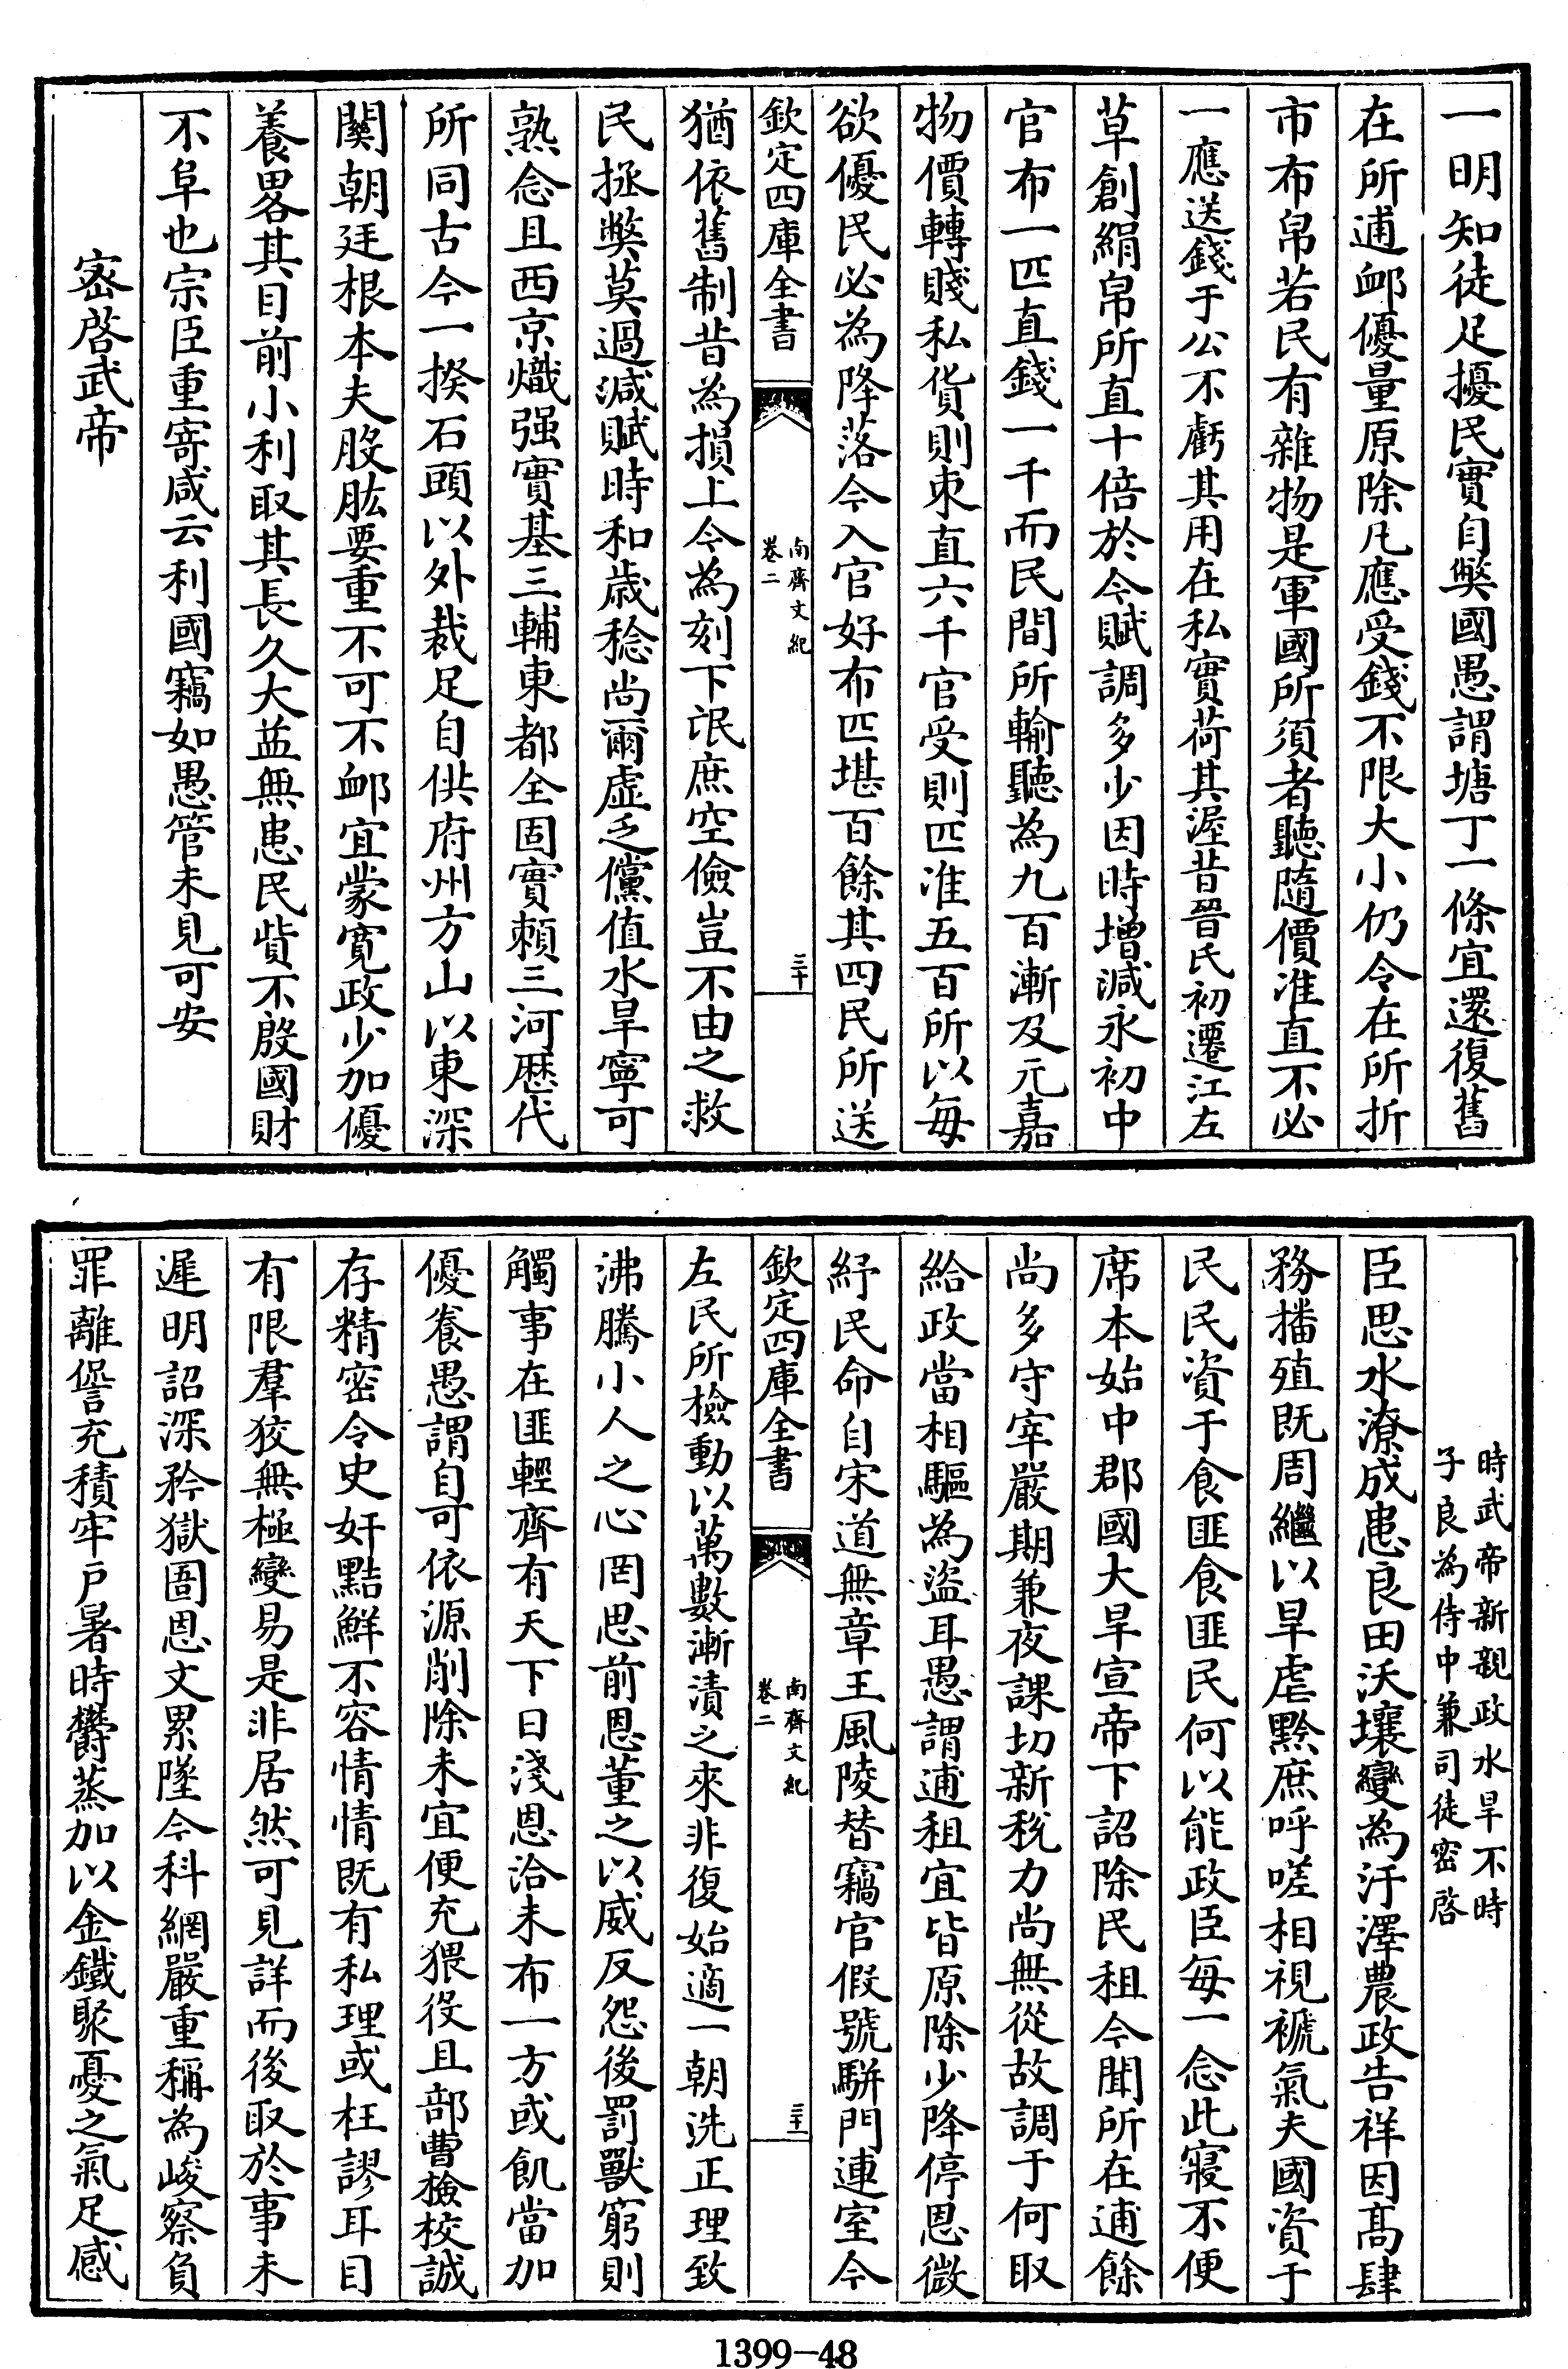 一明知徒足擾民實自獘國愚謂塘丁一條宜還復舊
在所逋䘏優量原除凡應受錢不限大小仍令在所折
市布帛若民有雜物是軍國所須者聽隨價准直不必
一應送錢于公不虧其用在私實荷其渥昔晉氏初遷江左
草創絹帛所直十倍於今賦調多少因時增減永初中
官布一匹直錢一千而民間所輸聽為九百漸及元嘉
物價轉賤私貨則束直六千官受則匹准五百所以每
欲優民必為降落今入官好布匹堪百餘其四民所送
欽定四庫全書
南齊文紀
卷二
三十
猶依舊制昔為損上今為刻下氓庶空儉豈不由之救
民拯獘莫過減賦時和歲稔尚爾虛乏儻值水旱寧可
熟念且西京熾强實基三輔東都全固實賴三河歷代
所同古今一揆石頭以外裁足自供府州方山以東深
關朝廷根本夫股肱要重不可不䘏宜蒙寛政少加優
養畧其目前小利取其長久大益無患民貲不殷國財
不阜也宗臣重寄咸云利國竊如愚管未見可安
密啓武帝
時武帝新親政水旱不時
子良為侍中兼司徒密啓
臣思水潦成患良田沃壤變為汙澤農政告祥因髙肆
務播殖既周繼以旱虐黔庶呼嗟相視褫氣夫國資于
民民資于食匪食匪民何以能政臣每一念此寢不便
席本始中郡國大旱宣帝下詔除民租今聞所在逋餘
尚多守宰嚴期兼夜課切新稅力尚無從故調于何取
給政當相驅為盜耳愚謂逋租宜皆原除少降停恩微
紓民命自宋道無章王風陵替竊官假號駢門連室今
欽定四庫全書
南齊文紀
卷二
三十一
左民所檢動以萬數漸漬之來非復始適一朝洗正理致
沸騰小人之心罔思前恩董之以威反怨後罰獸窮則
觸事在匪輕齊有天下日淺恩洽未布一方或飢當加
優養愚謂自可依源削除未宜便充猥役且部曹檢校誠
存精密令史奸黠鮮不容情情既有私理或枉謬耳目
有限羣狡無極變易是非居然可見詳而後取於事未
遲明詔深矜獄圄恩文累墜今科網嚴重稱為峻察負
罪離諐充積牢户暑時鬱蒸加以金鐵聚憂之氣足感
1399-48